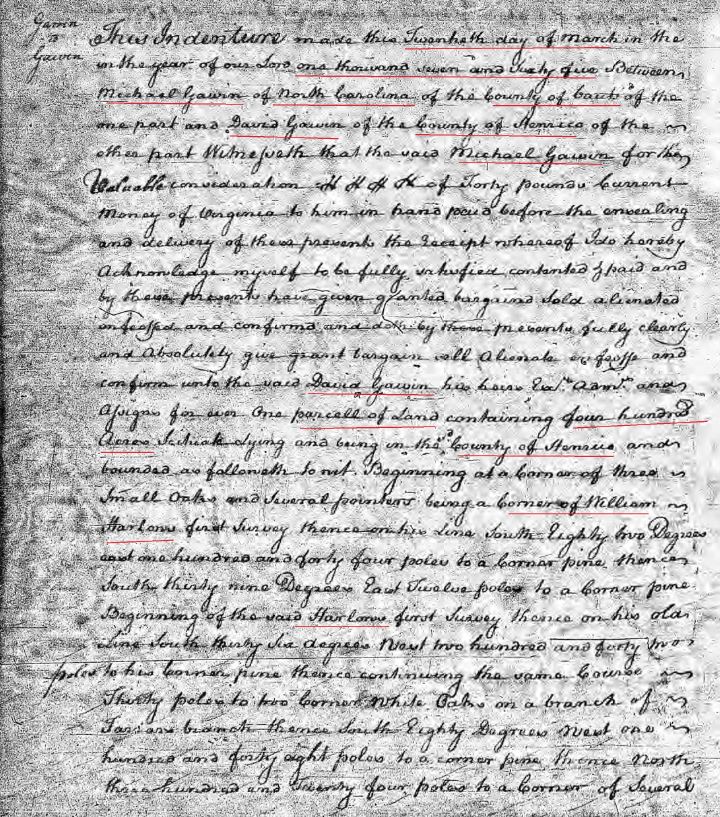 Gawin
to
Gawin
This Indenture made this Twentieth day of March in the
in the year of our Lord one thousand seven and Sixty five Between
Michael Gawin of North Carolina of the County of of the
one part and David Gawin of the County of Henrico of the
other part Witnesseth that the said Michael Gawin for the
Valuable consideration of Forty pounds Current
Money of Virginia to him in hand paid before the ensealing
and delivery of these presents the Receipt whereof I do hereby
Acknowledge myself to be fully satisfied contented & paid and
by these presents have given granted bargaind Sold alienated
enfeoffed and confirmd and doth by these presents fully clearly
and Absolutely give grant bargain sell Alienate enfeoffe and
confirm unto the said David Gawin his heirs Exrs. Admrs. and
Assigns for ever One parcell of Land containing four hundred
Acres Scituate Lying and being in the sd. County of Henrico and
bounded as followeth to wit. Beginning at a Corner of three
Small Oaks and Several pointers being a Corner of William
Harlows first Survey thence on his Line South Eighty two Degrees
east one hundred and forty four poles to a Corner pine thence
South thirty nine Degrees East Twelve poles to a Corner pine
Beginning of the said Harlows first Survey thence on his old
Line South thirty Six degrees West two hundred and forty two
poles to his Corner pine thence continuing the same Course
Thirty poles to two Corner White Oaks on a branch of
branch thence South Eighty Degrees West one
hundred and forty eight poles to a corner pine thence North
three hundred and Twenty four poles to a Corner of Several